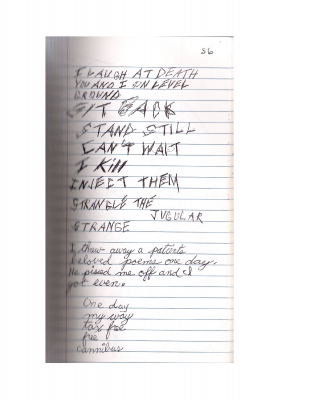 56
I LAUGH AT DEATH
YOU AND I ON LEVEL
GROUND
SIT BACK
STAND STILL
CAN'T WAIT
I Kill
INJECT THEM
STRANGLE THE
JUGULAR
STRANGE
I threw away a patients
beloved poems one day.
He pissed me off and I
got even.
One day
my way
tax free
free
cannibus